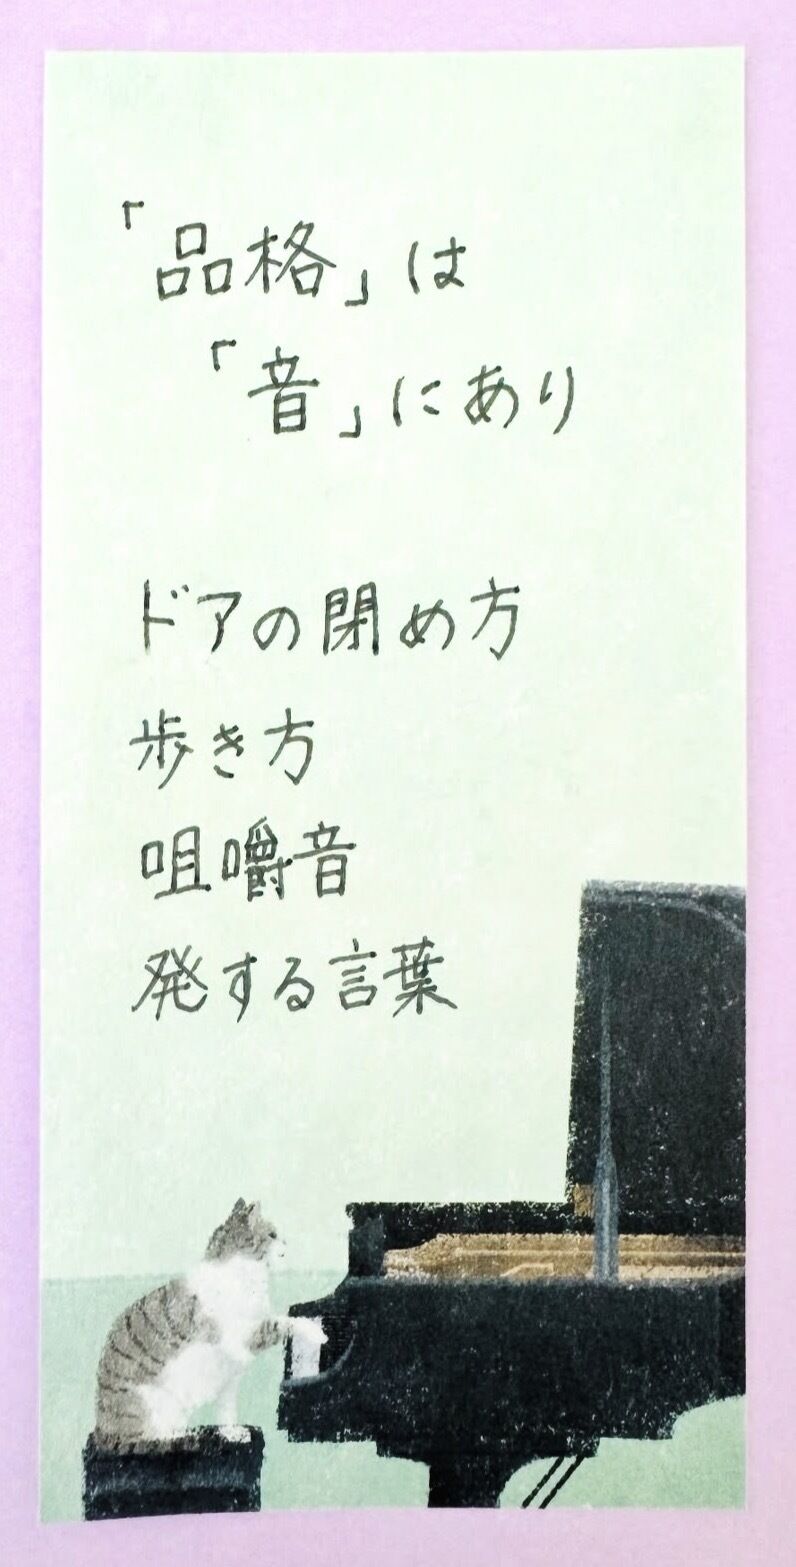 「品格」は
「音」にあり
ドアの閉め方
歩き方
咀嚼音
発する言葉